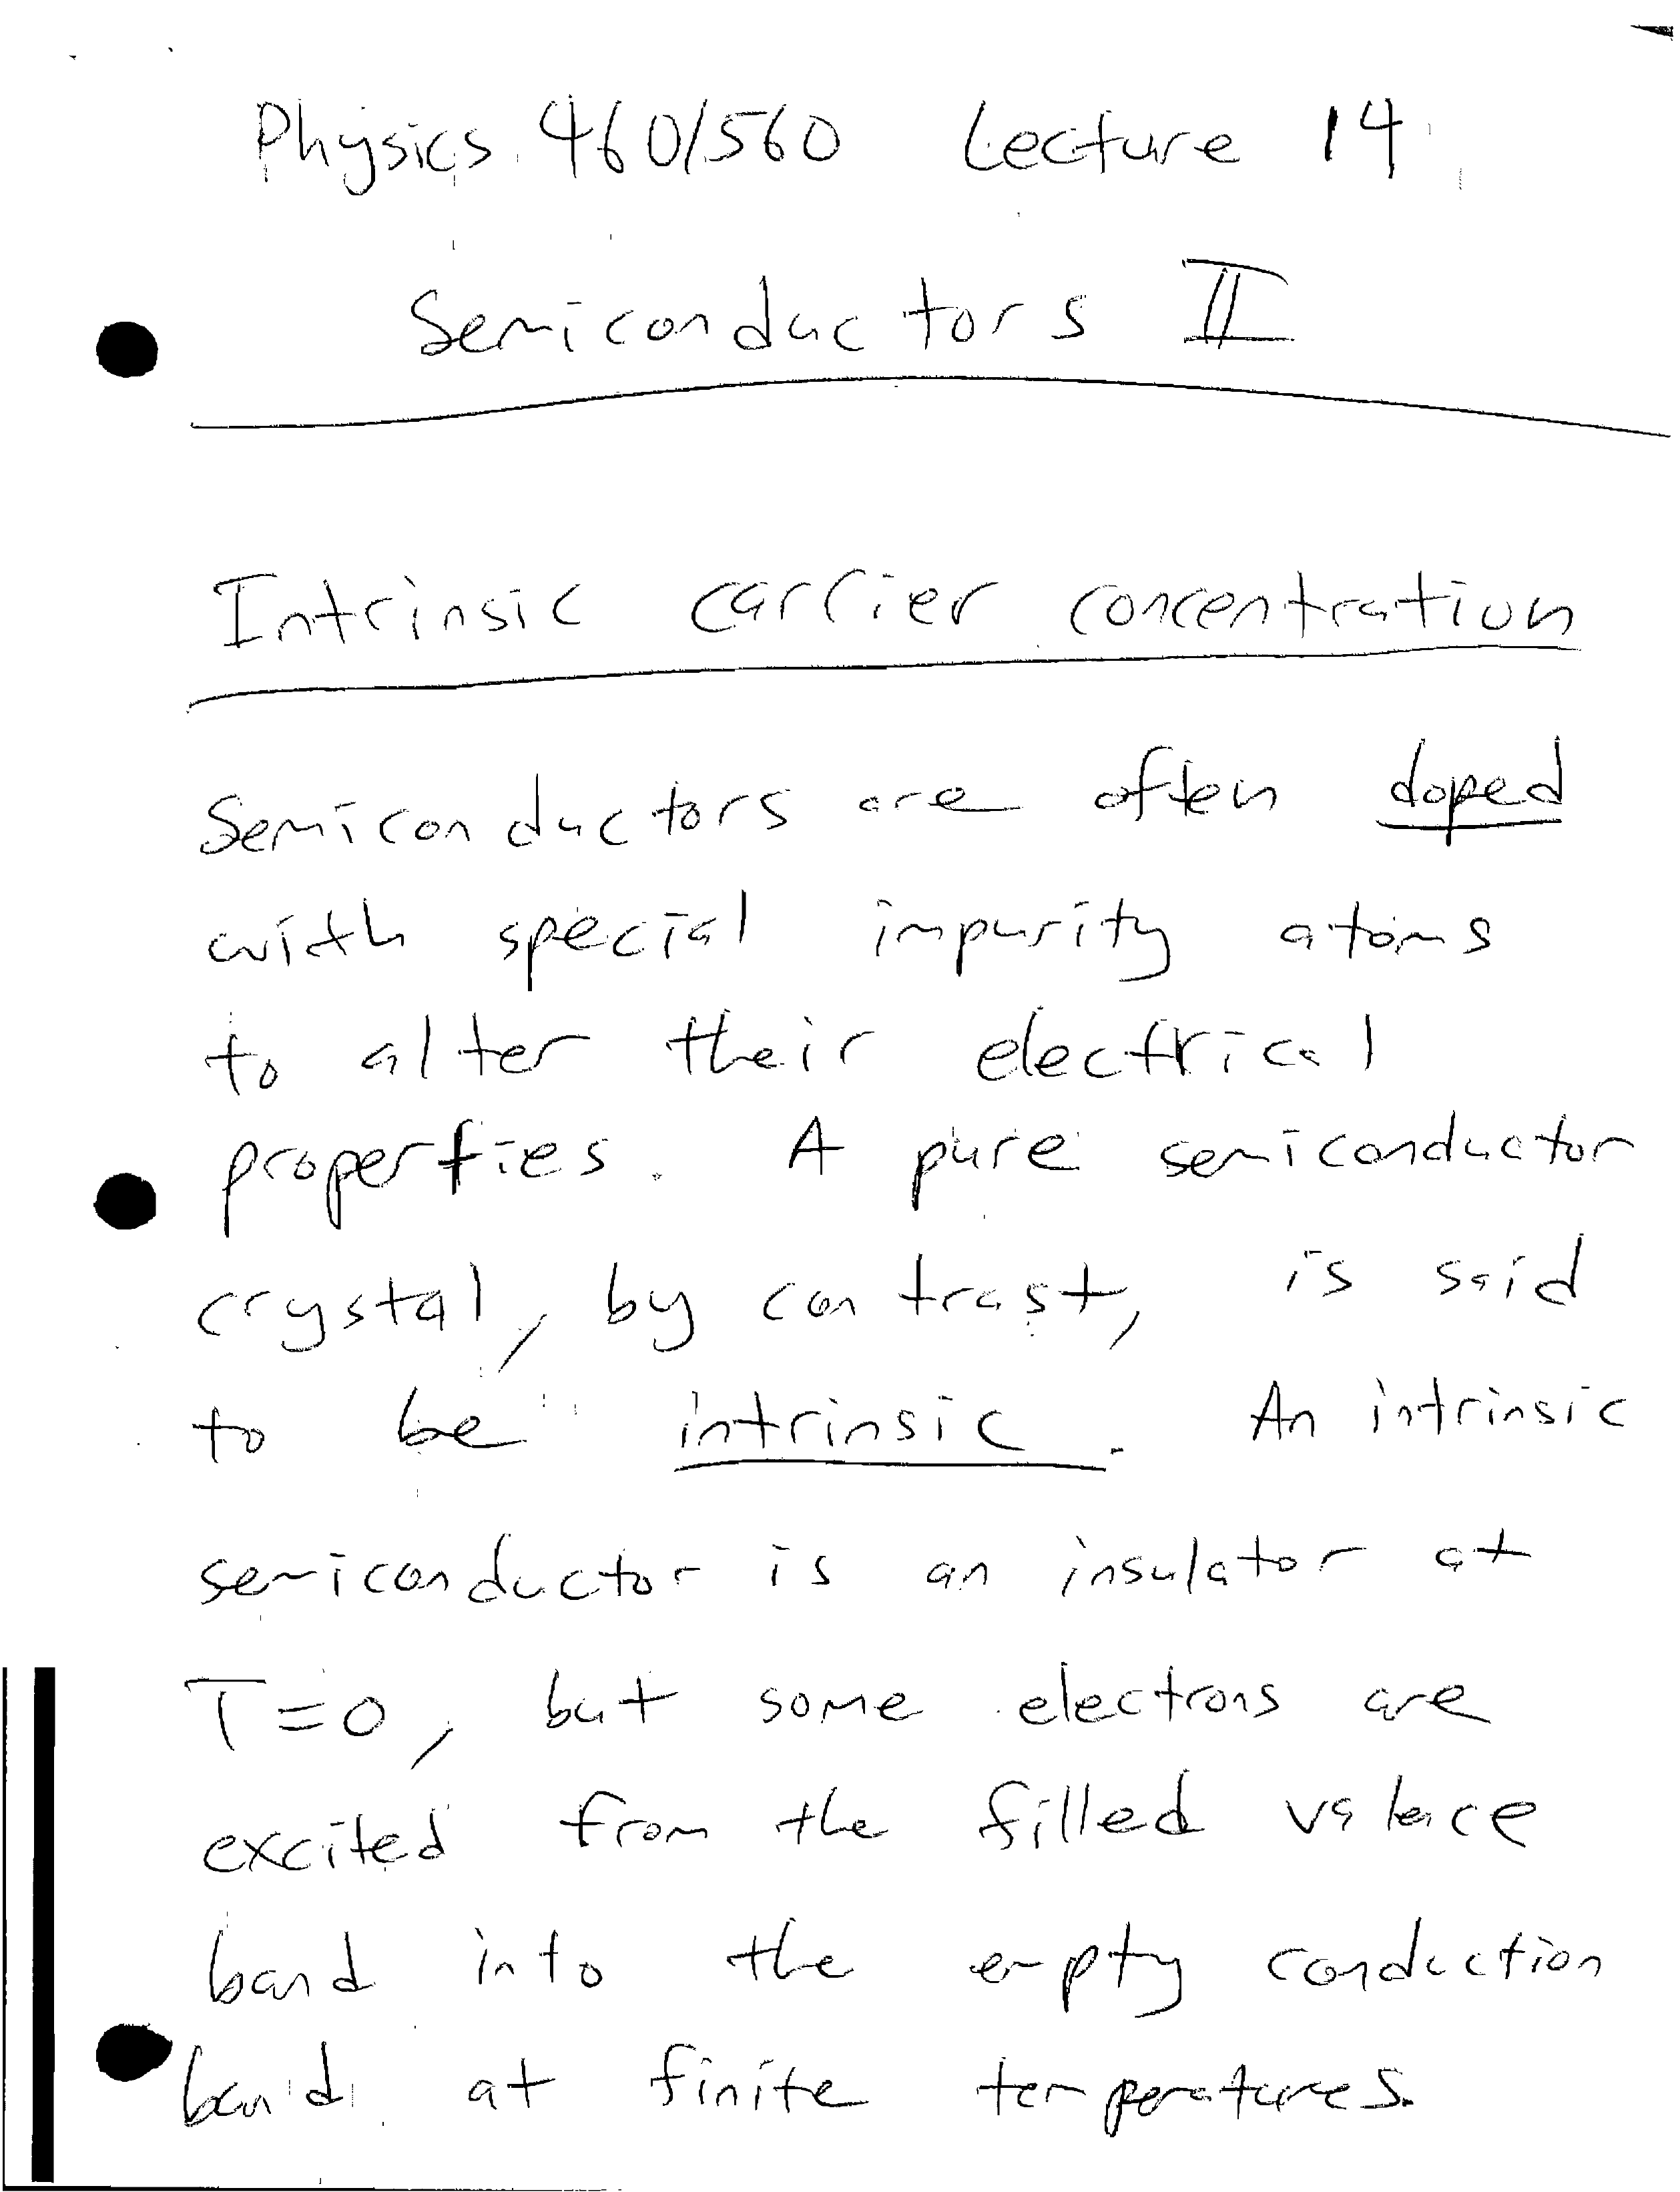 Physics 460/560 Lecture 14
Semiconductors II
Intrinsic carrier concentration
Semiconductors are often doped
with special impurity atoms
to alter their electrical
properties. A pure semiconductor
crystal, by contrast, is said
to be intrinsic. An intrinsic
semiconductor is an insulator at
T=0, but some electrons are
excited from the filled valece
band into the empty conduction
band at finite temperatures.